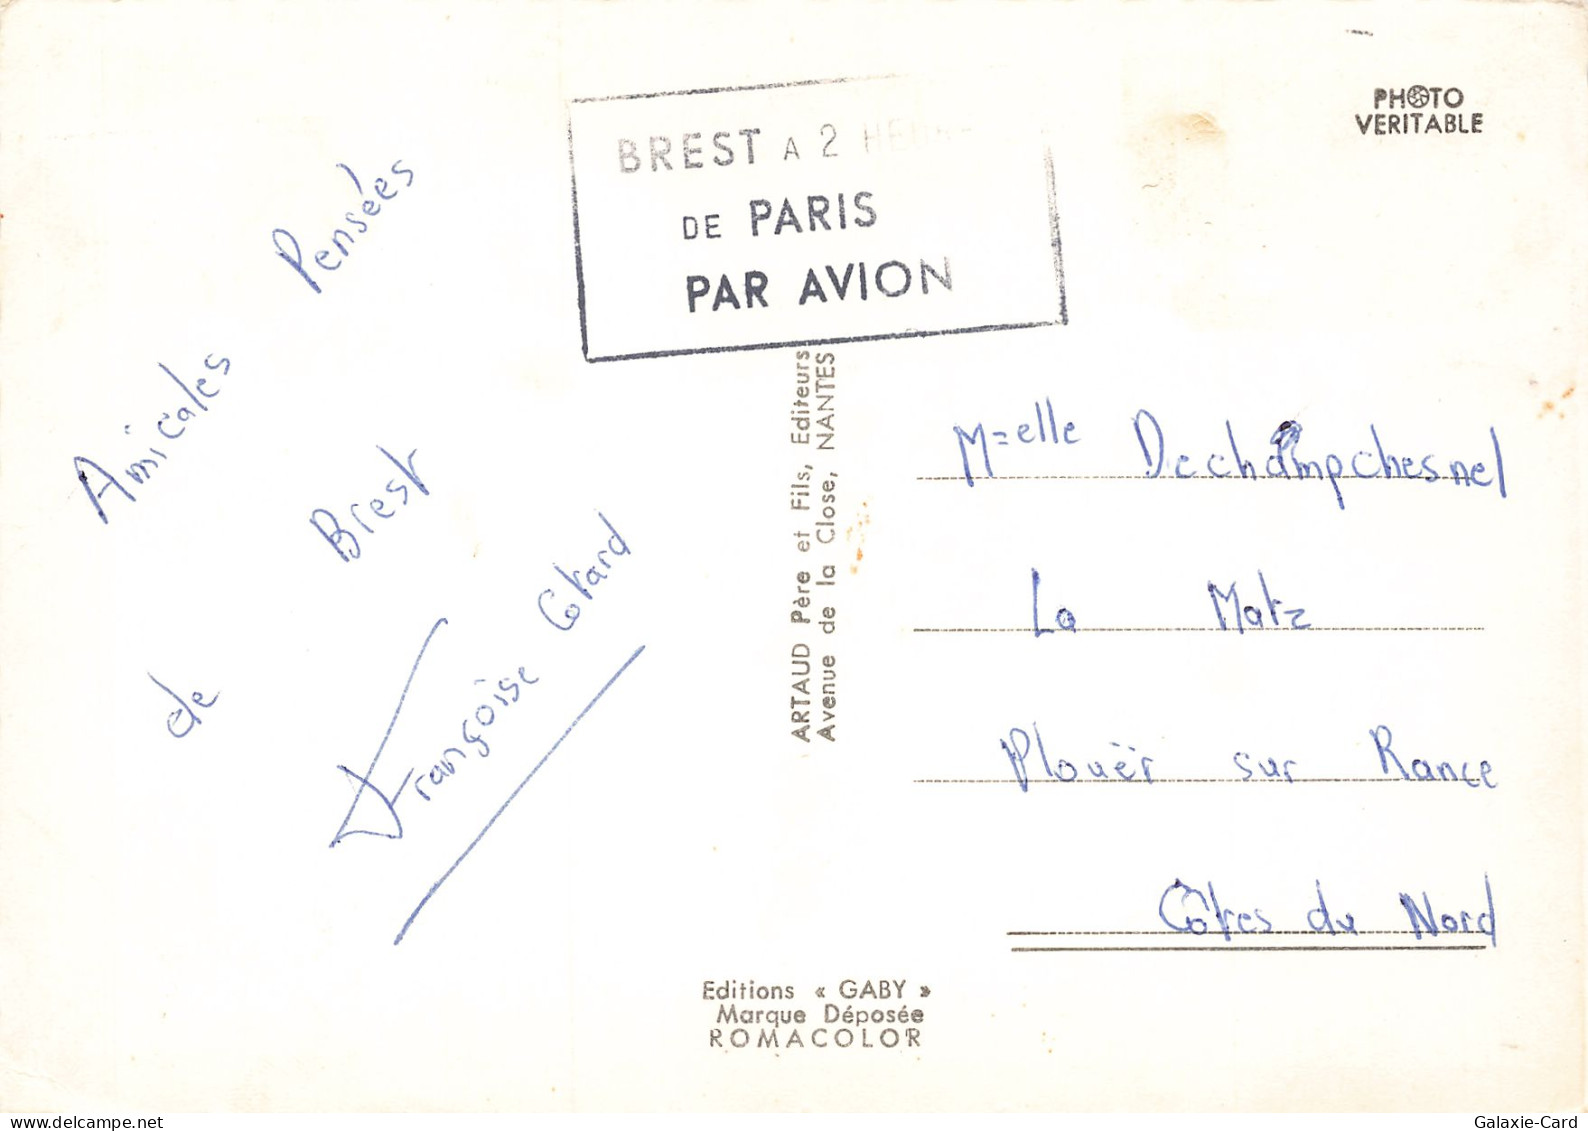 BREST A 2
DE PARIS
PAR AVION
PHOTO
VERITABLE
Amicales Pensées
de Brest
Françoise Cotard
ARTAUD Père et Fils, Editeurs
Avenue de la Close, NANTES
M=elle Dechampchesnel
La Matz
Plouër sur Rance
Côtes du Nord
Editions « GABY »
Marque Déposée
ROMACOLOR
www.delcampe.net
Galaxie-Card